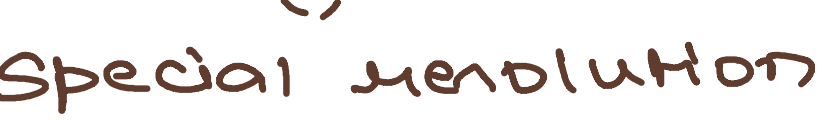 Special resolution